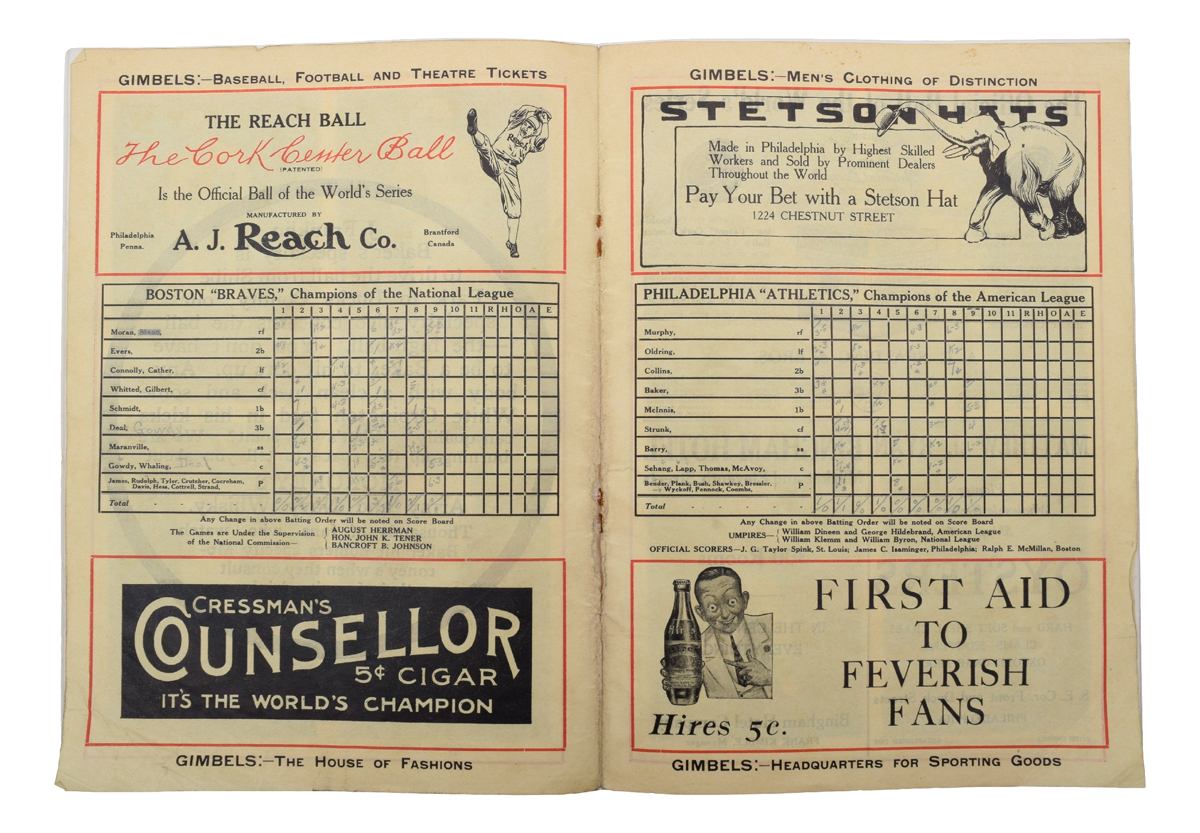 GIMBELS:—BASEBALL, FOOTBALL AND THEATRE TICKETS
THE REACH BALL
The Cork Center Ball
(PATENTED)
Is the Official Ball of the World's Series
MANUFACTURED BY
Philadelphia
Penna.
A. J. Reach Co.
Brantford
Canada
Reach
BOSTON "BRAVES," Champions of the National League
1 2 3 4 5 6 7 8 9 10 11 R H O A E
Moran, rf
Evers, 2b
Connolly, Cather, lf
Whitted, Gilbert, cf
Schmidt, 1b
Deal, Gowdy 3b
Maranville, ss
Gowdy, Whaling, Deal c
James, Rudolph, Tyler, Crutcher, Cocreham,
Davis, Hess, Cottrell, Strand, P
Total - -
Any Change in above Batting Order will be noted on Score Board
The Games are Under the Supervision
of the National Commission—
AUGUST HERRMAN
HON. JOHN K. TENER
BANCROFT B. JOHNSON
CRESSMAN'S
COUNSELLOR
5¢ CIGAR
IT'S THE WORLD'S CHAMPION
GIMBELS:—THE HOUSE OF FASHIONS
GIMBELS:—MEN'S CLOTHING OF DISTINCTION
STETSON HATS
Made in Philadelphia by Highest Skilled
Workers and Sold by Prominent Dealers
Throughout the World
Pay Your Bet with a Stetson Hat
1224 CHESTNUT STREET
PHILADELPHIA "ATHLETICS," Champions of the American League
1 2 3 4 5 6 7 8 9 10 11 R H O A E
Murphy, rf
Oldring, lf
Collins, 2b
Baker, 3b
McInnis, 1b
Strunk, cf
Barry, ss
Schang, Lapp, Thomas, McAvoy, c
Bender, Plank, Bush, Shawkey, Bressler,
Wyckoff, Pennock, Coombs, P
Total - - - -
Any Change in above Batting Order will be noted on Score Board
UMPIRES—
William Dineen and George Hildebrand, American League
William Klemm and William Byron, National League
OFFICIAL SCORERS—J. G. Taylor Spink, St. Louis; James C. Isaminger, Philadelphia; Ralph E. McMillan, Boston
Hires
FIRST AID
TO
FEVERISH
FANS
Hires 5c.
GIMBELS:—HEADQUARTERS FOR SPORTING GOODS